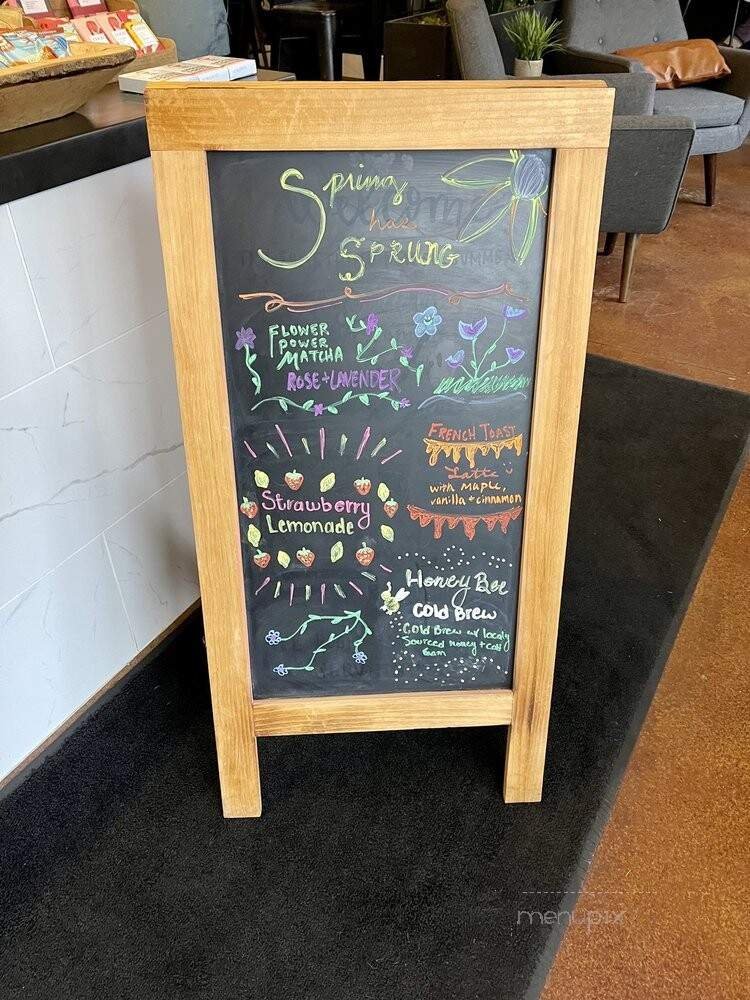 Spring
has
SPRUNG
FLOWER
POWER
MATCHA
ROSE + LAVENDER
FRENCH TOAST
Latte
with maple,
vanilla + cinnamon
Strawberry
Lemonade
Honey Bee
Cold Brew
Cold Brew w/ locally
Sourced honey + cold
foam
menupix